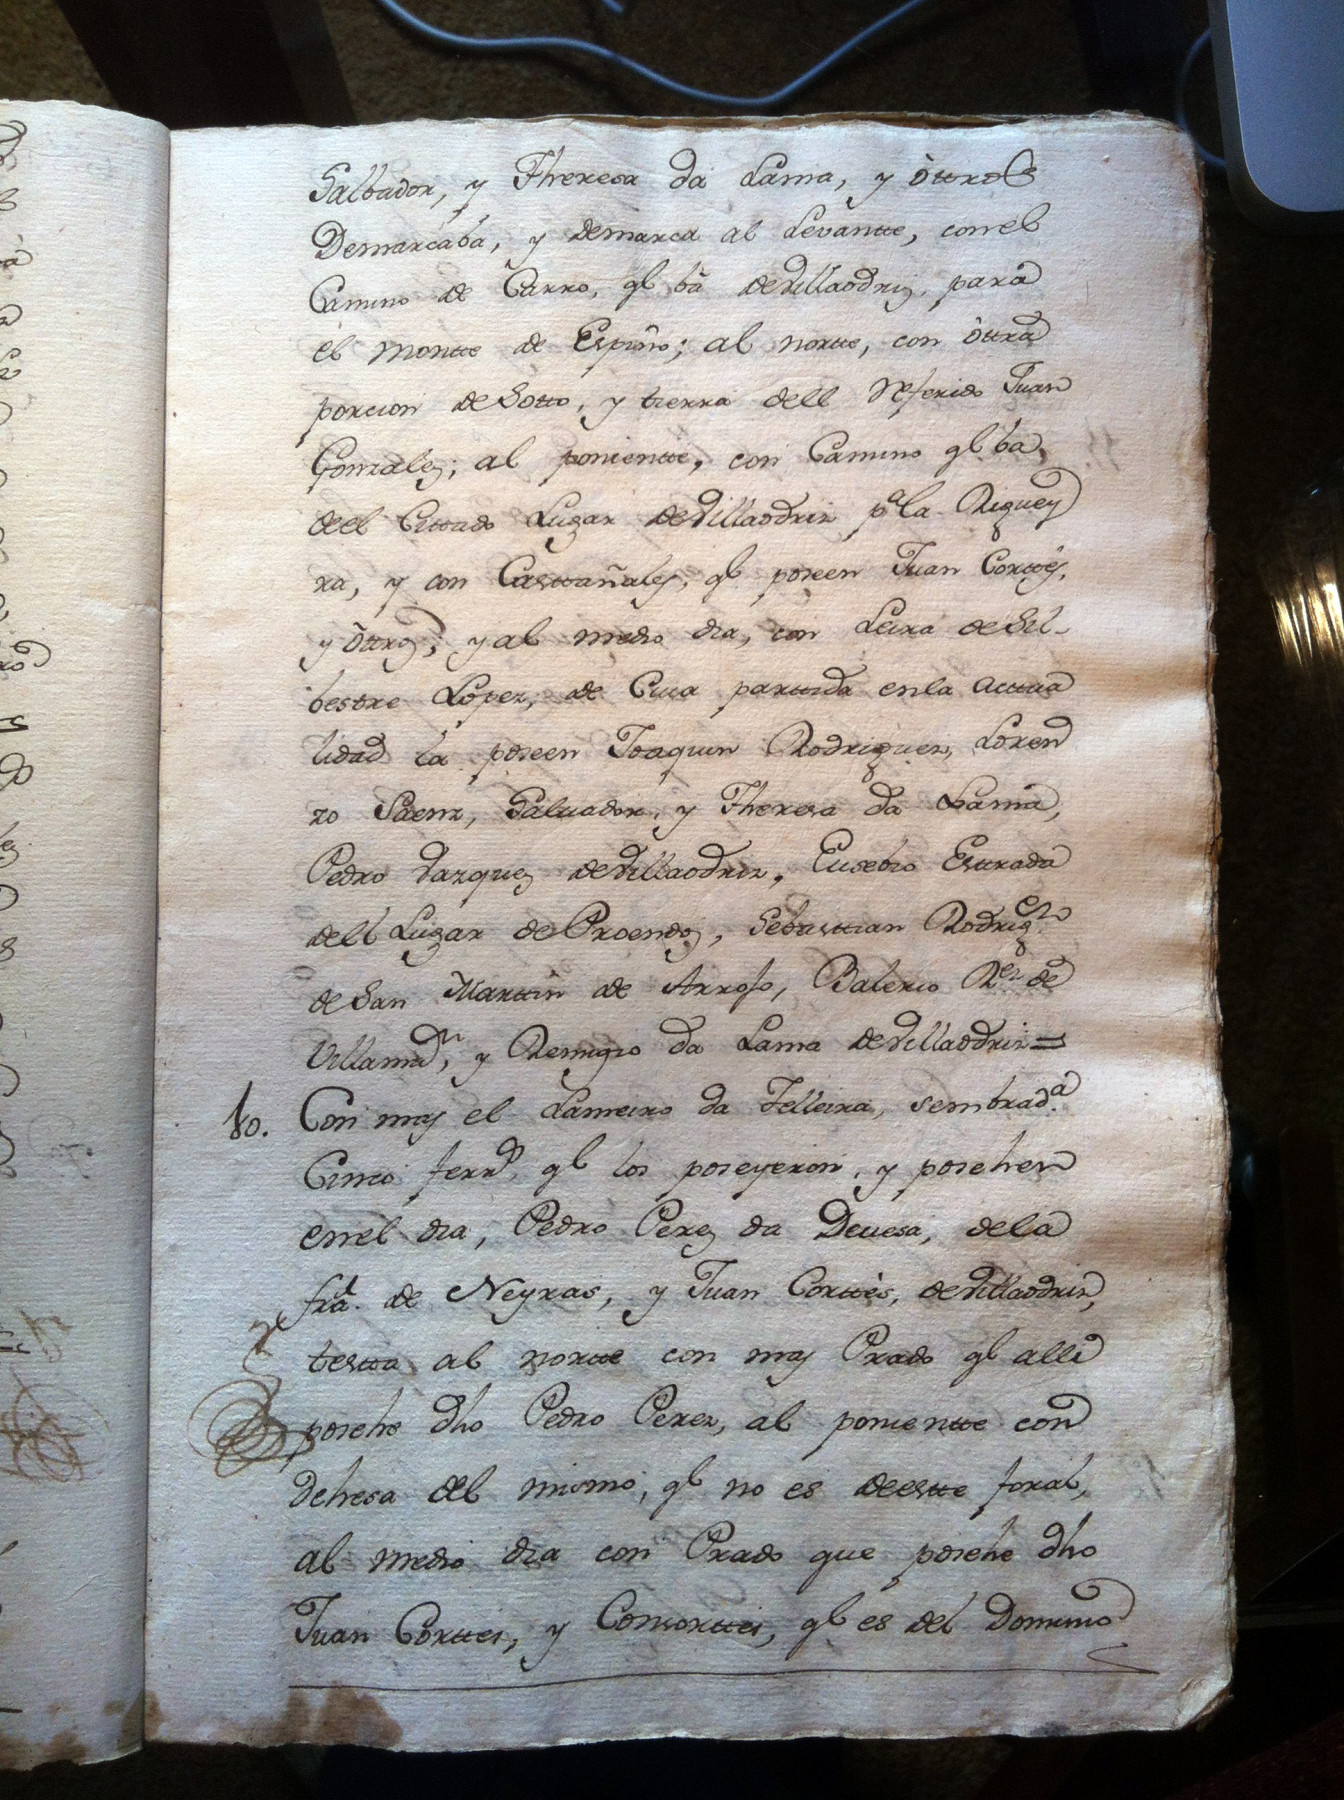 Salbador, y Theresa da Lama, y òttros
Demarcaba, y demarca al Levantte, con el
Camino de Carro, qe bà de Villaodriz, para
èl montte de Espiño; al nortte, con òttra
porcion de Sotto, y tierra dell Referido Juan
Gonzalez; al ponientte, con Camino qe ba,
de el Cittado Lugar de Villaodriz pa la Riguey
ra, y con Casttañales, qe poseen Juan Corttés,
y òttros; y al medio dia, con Leira de Sil-
bestre Lopez, de Cuia parttida en la acttua
lidad la poseen Joaquin Rodriguez, Loren
zo Saenz, Salvador, y Theresa da Lama,
Pedro Vazquez de Villaodriz, Eusebio Estrada
dell Lugar de Proendos, Sebasttian Rodrigez
de San Marttin de Arrojo, Balerio Rez de
Villamr, y Remigio da Lama de Villaodriz =
10. Con mas el Lameiro da Telleira, sembrada
Cinco ferrs, qe los poseyeron, y posehen
en el dia, Pedro Perez da Devesa, de la
frã. de Neyras, y Juan Corttès, de Villaodriz,
testta al nortte con mas Prado qe alli
posehe dho Pedro Perez, al ponientte con
Dehesa del mismo, qe no es de estte foral,
al medio dia con Prado que posehe dho
Juan Corttes, y Consorttes, qe es del Dominio